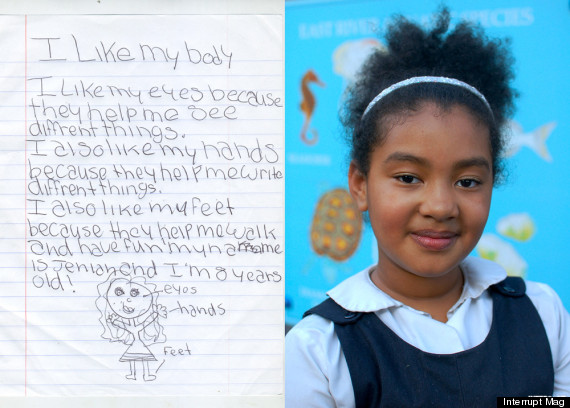 I Like my body
I Like my eyes because
they help me see
diffrent things.
I also like my hands
because they help me write
diffrent things.
I also like my feet
because they help me walk
and have fun! my name
is Jeniah and I'm 8 years
old!
eyes
hands
feet
EAST RIVER SPECIES
Interrupt Mag